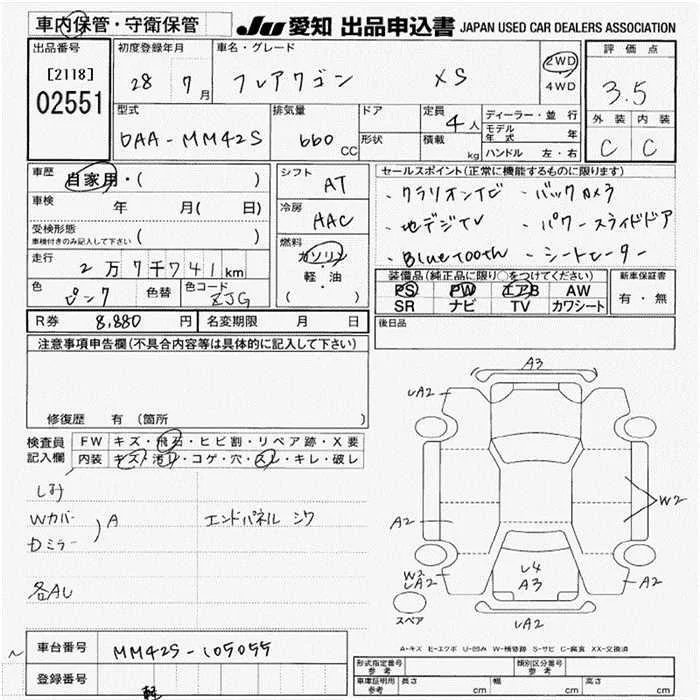 車内保管・守衛保管
JU 愛知 出品申込書 JAPAN USED CAR DEALERS ASSOCIATION
出品番号
[2118]
02551
初度登録年月
28 7月
車名・グレード
フレアワゴン XS
2WD
4WD
評価点
3.5
外装 内装
C C
型式
DAA-MM42S
排気量
660 CC
ドア
形状
定員
4人
積載
kg
ディーラー・並行
モデル年式 年
ハンドル 左・右
車歴 自家用・( )
車検 年 月(日)
受検形態
車検付きのみ記入して下さい ( )
走行 2万7千741km
色 ピンク 色替
色コード ZJG
シフト
AT
冷房
AAC
燃料
ガソリン
軽・油
( )
セールスポイント(正常に機能するものに限ります)
・クラリオンナビ ・バックカメラ
・地デジTV ・パワースライドドア
・Bluetooth ・シートヒーター
装備品(純正品に限り○をつけてください)
PS PW エアB AW
SR ナビ TV カワシート
新車保証書
有・無
R券 8,880円 名変期限 月 日
後日品
注意事項申告欄(不具合内容等は具体的に記入して下さい)
修復歴 有(箇所 )
検査員記入欄
FW キズ・飛石・ヒビ割・リペア跡・X要
内装 キズ・汚れ・コゲ・穴・スレ・キレ・破レ
しみ
Wカバー
Dミラー
)A
エンドパネル シワ
各AU
A3
LA2
A2
W2
W2
LA2
L4
A3
A2
LA2
スペア
A-キズ E-エクボ U-凹み W-補修跡 S-サビ C-腐食 XX-交換済
車台番号 MM42S-105055
登録番号
軽
形式指定番号
参考
類別区分番号
参考
車庫証明用
参考
長さ cm 幅 cm 高さ cm